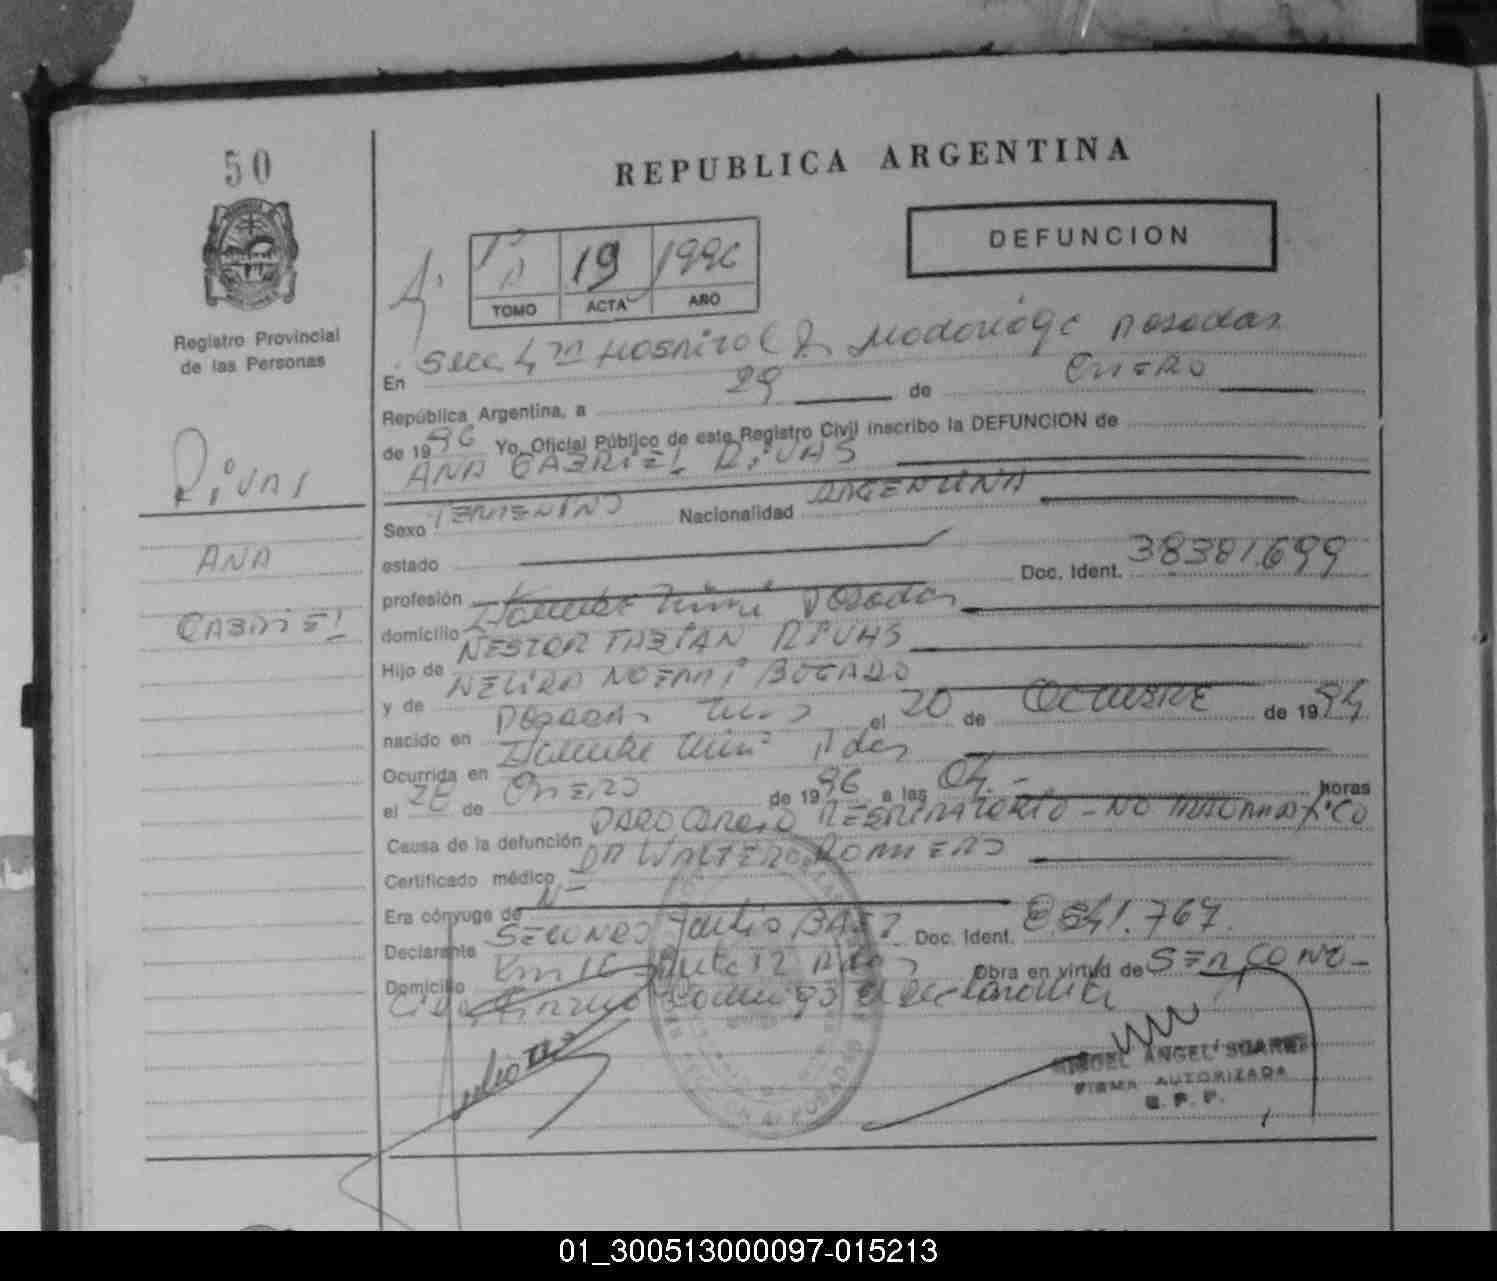 50
REPUBLICA ARGENTINA
DEFUNCION
1º 19 1996
TOMO ACTA AÑO
Registro Provincial
de las Personas
En Secc 4ta Hospital R. Madariaga Posadas
República Argentina, a 29 de Enero
de 1996 Yo, Oficial Público de este Registro Civil inscribo la DEFUNCION de
ANA GABRIEL RIVAS
Rivas
Ana
Gabriel
Sexo FEMENINO Nacionalidad ARGENTINA
estado
Doc. Ident. 38381.699
profesión
domicilio Posadas
Hijo de NESTOR FABIAN RIVAS
y de NELIDA NOEMI BOGADO
nacido en Posadas el 20 de OCTUBRE de 1994
Ocurrida en Pdas
el 28 de Enero de 1996 a las 04.- horas
Causa de la defunción PARO CARDIO RESPIRATORIO - NO TRAUMATICO
Certificado médico DR WALTER ROMERO
Era cónyuge de
Declarante SEGUNDO Julio BAEZ Doc. Ident. 8541.767.
Domicilio Km 16 Ruta 12 Pdas Obra en virtud de SER CONO-
Cido, Firma conmigo el declarante
MIGUEL ANGEL SUAREZ
FIRMA AUTORIZADA
R. P. P.
01_300513000097-015213